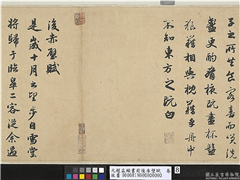 子之所共食客喜而笑洗
盞更酌肴核既盡杯盤
狼藉相與枕藉乎舟中
不知東方之既白
後赤壁賦
是歲十月之望步自雪堂
將歸于臨皋二客從余過
元趙孟頫書前後赤壁賦 卷